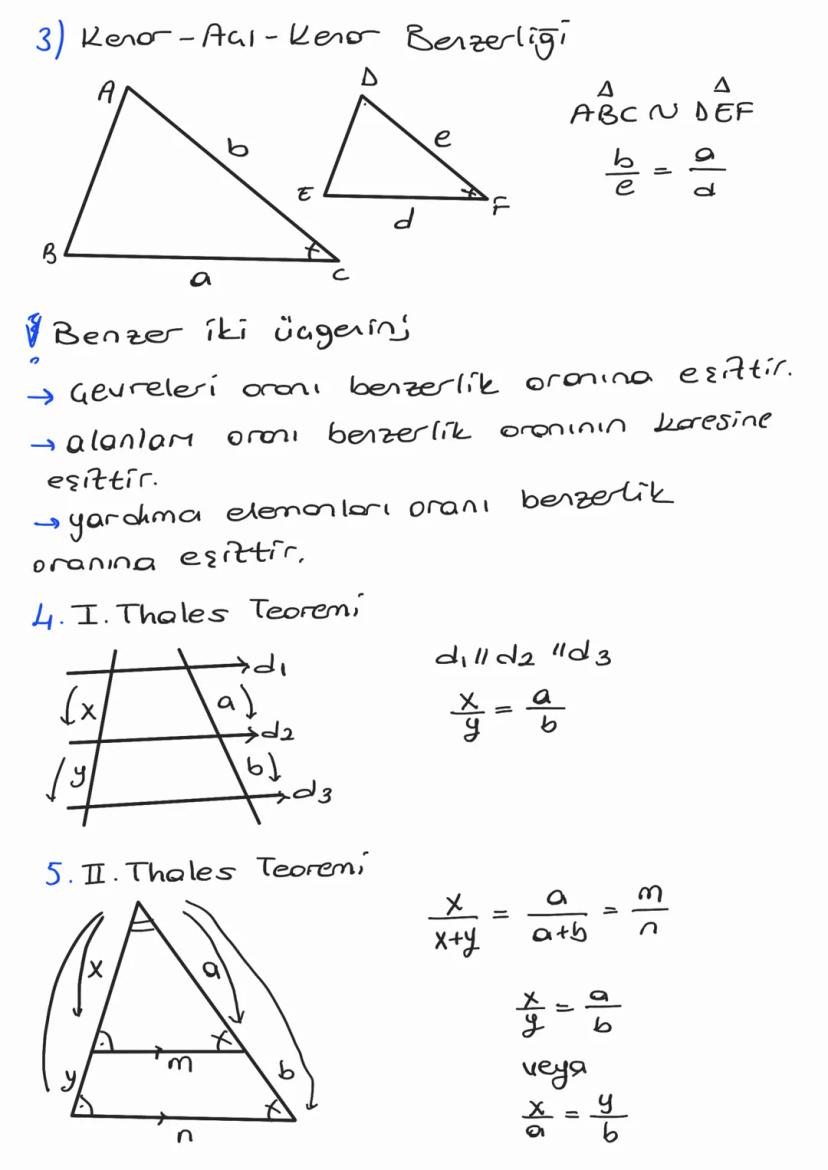 3) Kenar-Açı-Kenar Benzerliği
A
b
B
a
C
D
e
E
d
F
Δ Δ
ABC ~ DEF
b/e = a/d
! Benzer iki üçgenin;
→ Çevreleri oranı benzerlik oranına eşittir.
→ alanları oranı benzerlik oranının karesine
eşittir.
→ yardımcı elemanları oranı benzerlik
oranına eşittir.
4. I. Thales Teoremi
d1
x
a
d2
y
b
d3
d1 // d2 // d3
x/y = a/b
5. II. Thales Teoremi
x
a
m
y
b
n
x/x+y = a/a+b = m/n
x/y = a/b
veya
x/a = y/b